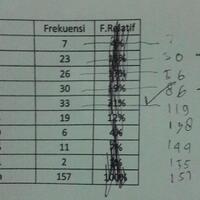 Frekuensi F.Relatif
7 7
23 30
26 56
30 86
33 119
19 12% 138
6 4% 144
11 155
2 157
157 100%